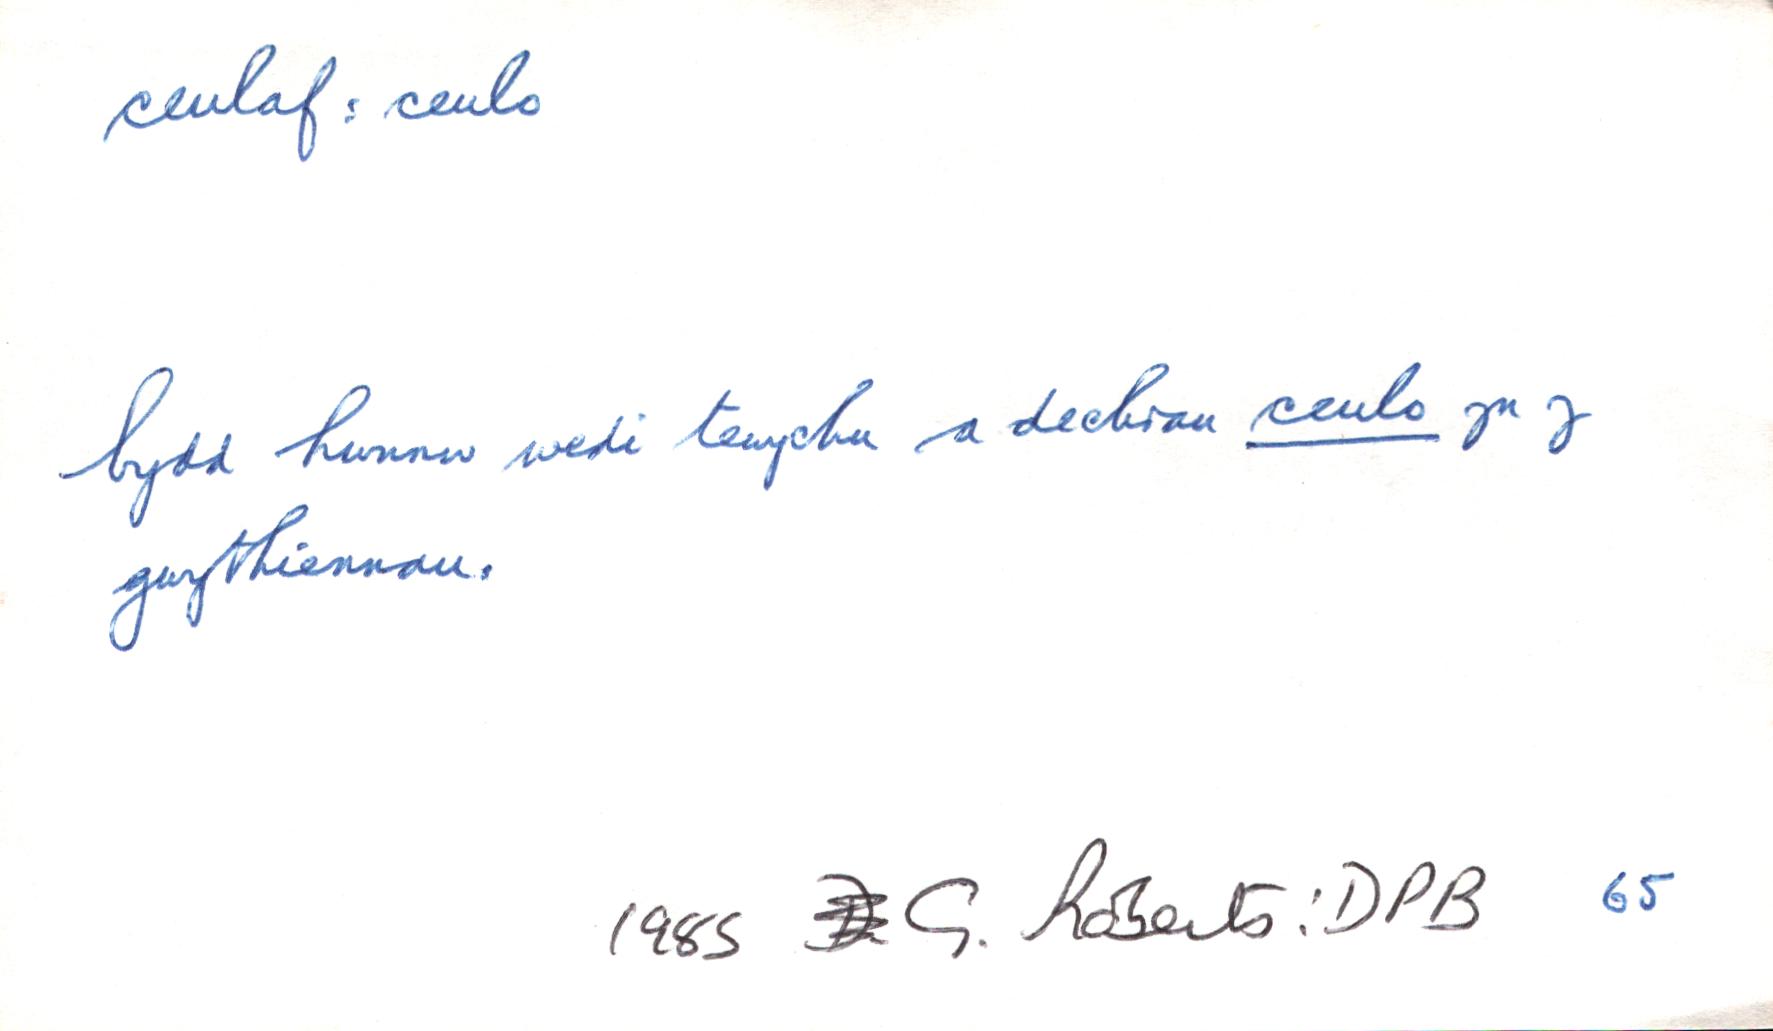 ceulaf : ceulo
bydd hwnnw wedi tewychu a dechrau ceulo yn y
gwythiennau.
1985 G. Roberts : DPB 65